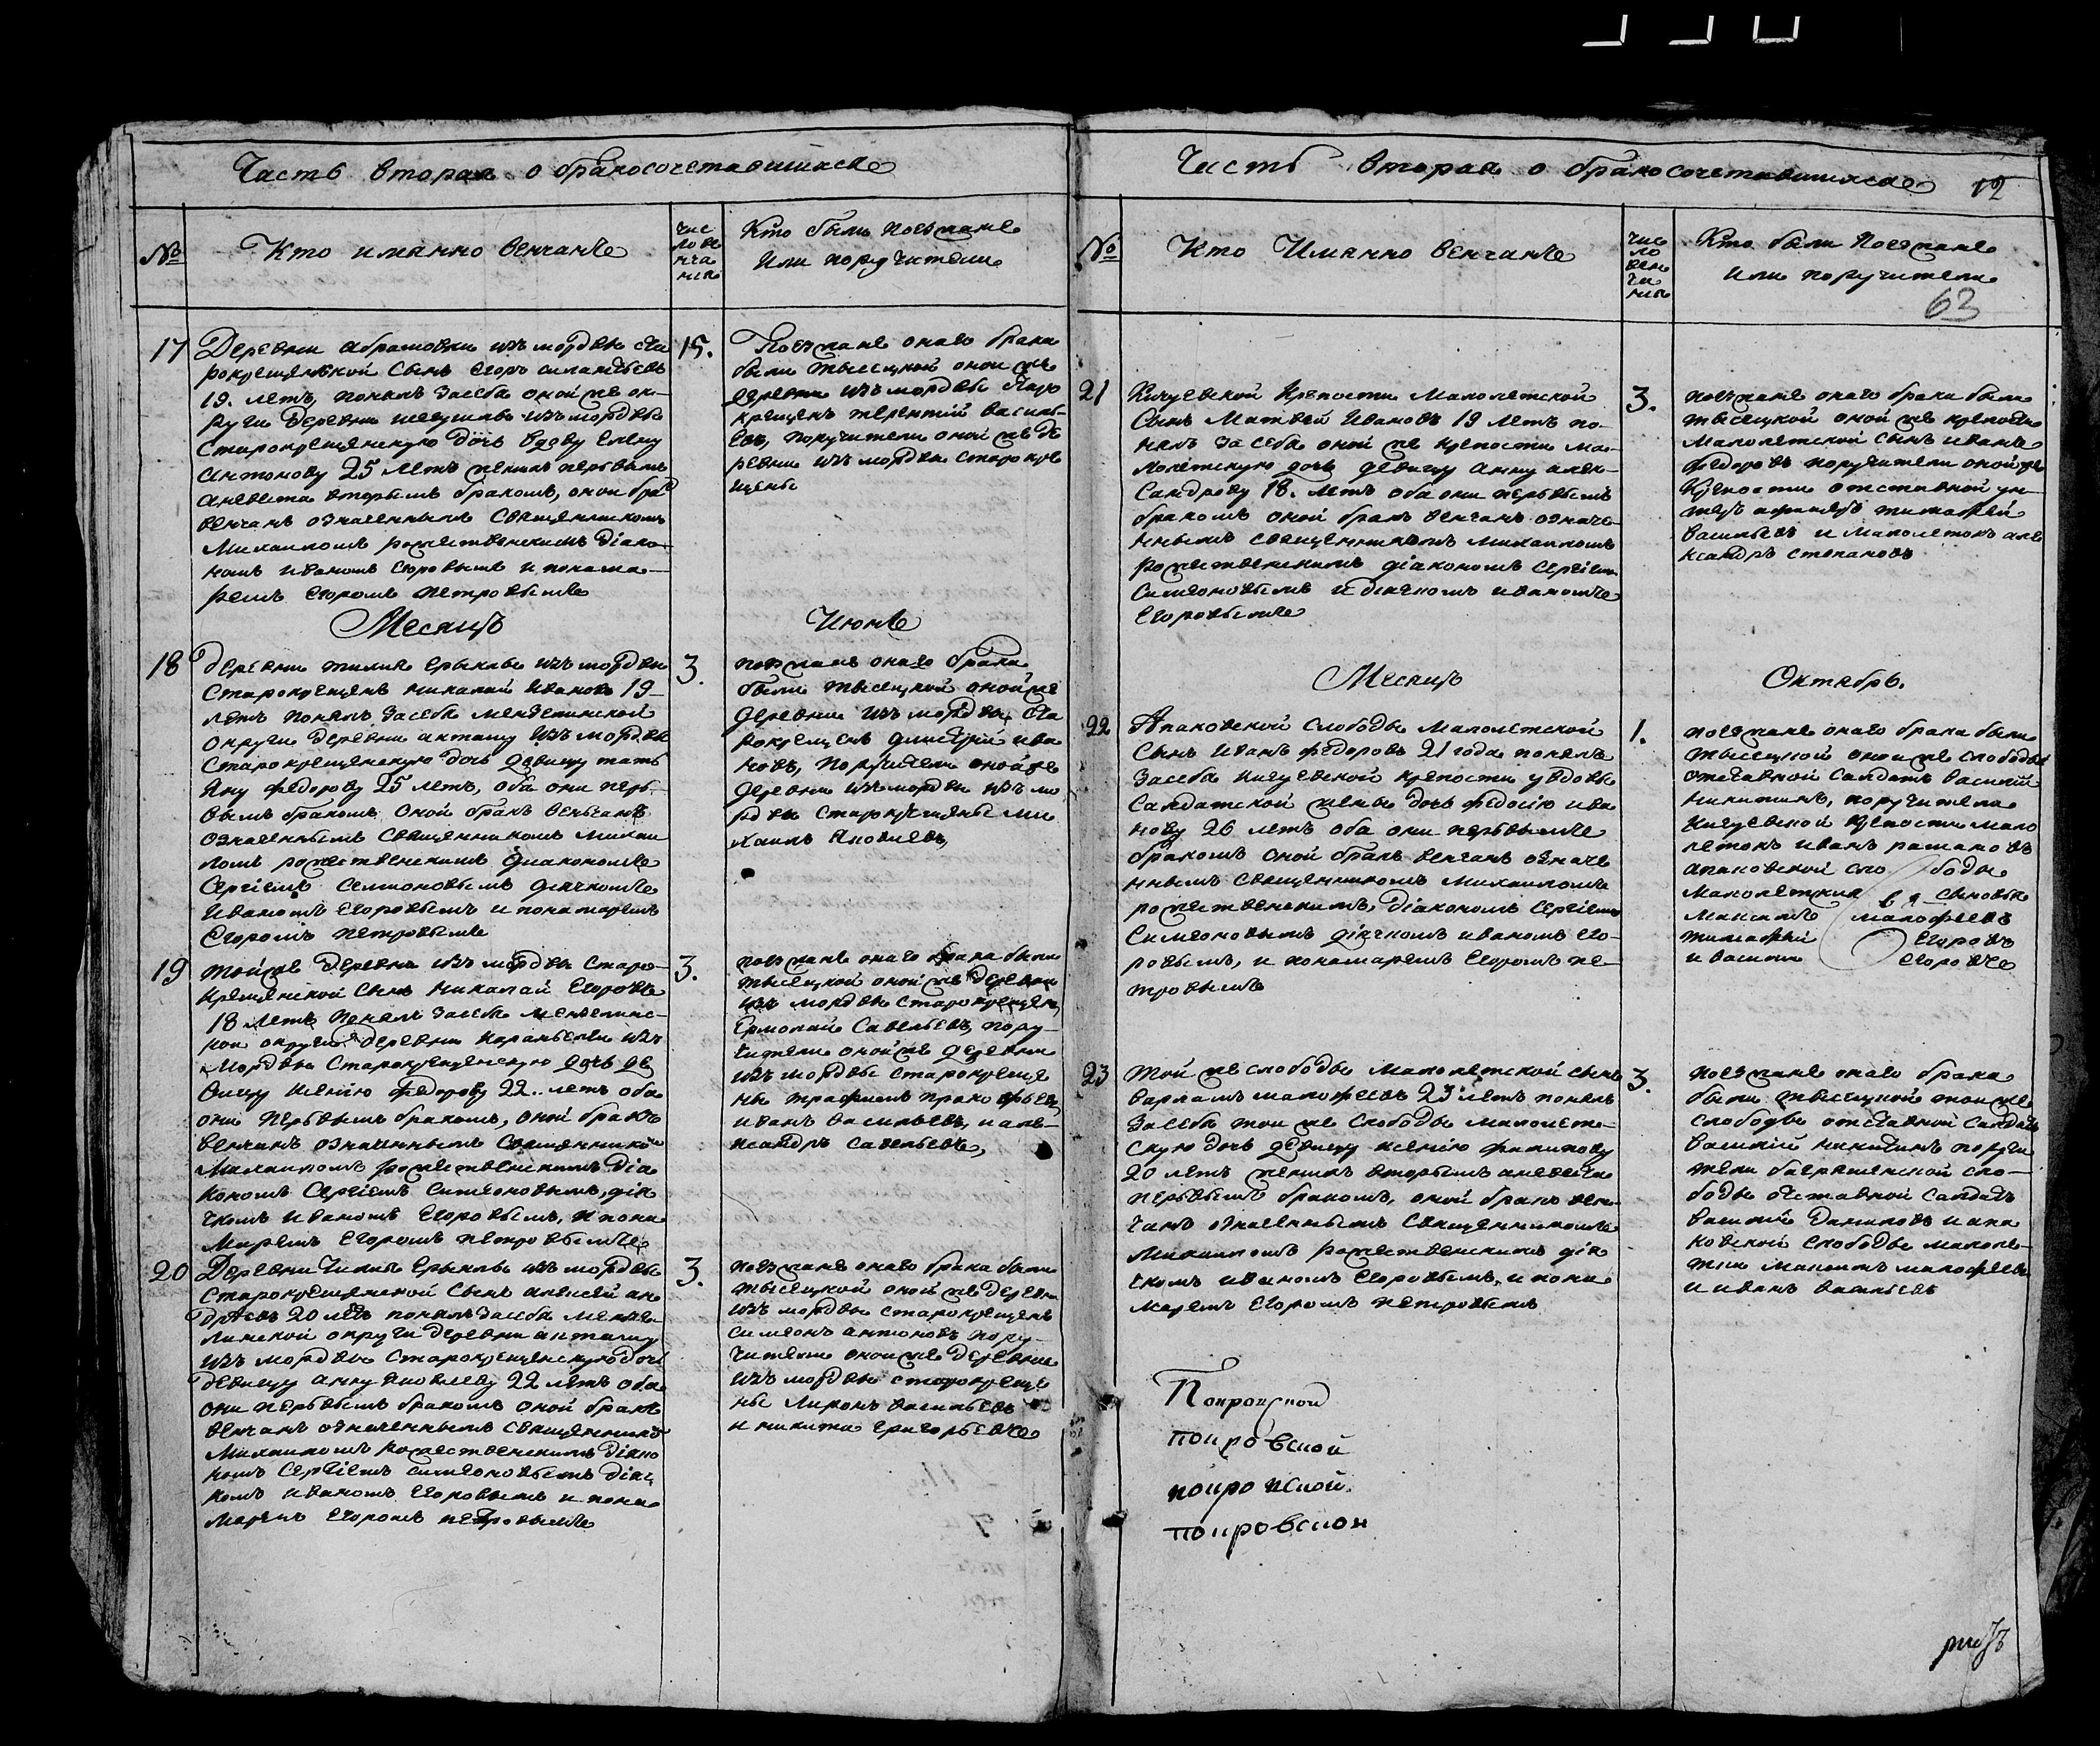 Часть вторая о бракосочетавшихся
№
Кто имянно венчаны
чис
ло ве
нча
ния
Кто были поезжане
или поручители
17
Деревни Абрамовки изъ мордвы ста
рокрещенской сынъ Егоръ Силантьевъ
19. летъ, понялъ засебя оной же ок-
руги деревни изъ мордвы
старокрещенскую дочь вдову Елену
Антонову 25 летъ женихъ первымъ
аневеста вторымъ бракомъ, оной бракъ
венчанъ означеннымъ священникомъ
Михаиломъ рожественскимъ діако-
номъ иваномъ Егоровымъ и понама-
ремъ Егоромъ Петровымъ
15.
Поезжане онаго брака
были тысецкой оной же
деревни изъ мордвы старо
крещенъ терентий василь-
евъ, поручители оной же де
ревни изъ мордвы старокре
щены
Месяцъ
Июнь
18
деревни чилны Ерыклы изъ мордвы
старокрещенъ николай Ивановъ 19
летъ понялъ засебя мензелинской
округи деревни акташу изъ мордвы
старокрещенскую дочь девицу тать
яну федорову 25 летъ, оба они перь-
вымъ бракомъ оной бракъ венчанъ
означеннымъ священникомъ михаи
ломъ рожественскимъ диакономъ
Сергіемъ Семионовымъ дьячкомъ
Иваномъ Егоровымъ и понамаремъ
Егоромъ петровымъ
3.
поезжане онаго брака
были тысецкой оной же
деревни изъ мордвы ста
рокрещенъ дмитрий ива
новъ, поручители оной же
деревни изъ мордвы изъ мо
рдвы старокрещены ми
хаилъ Яковлевъ,
19
той же деревни изъ мордвы старо-
крещенской сынъ николай Егоровъ
18 летъ понялъ засебя мензелинс-
кой округи деревни изъ
мордвы старокрещенскую дочь де
вицу ксенію федорову 22. летъ оба
они первымъ бракомъ, оной бракъ
венчанъ означеннымъ священником
Михаиломъ рожественскимъ діа
кономъ Сергіемъ симеоновымъ, дья
чкомъ иваномъ Егоровымъ, и пона
маремъ Егоромъ петровымъ
3.
поезжане онаго брака были
тысецкой оной же деревни
изъ мордвы старокрещенъ
Ермолай Савельевъ, пору-
чители оной же деревни
изъ мордвы старокреще
ны трафимъ
иванъ васильевъ, и але-
ксандръ савельевъ,
20
Деревни Чилны Ерыклы изъ мордвы
старокрещенской сынъ алексей ан
дреевъ 20 летъ понялъ засебя мензе-
линской округи деревни акташу
изъ мордвы старокрещенскую дочь
девицу анну яковлеву 22 летъ оба
они первымъ бракомъ оной бракъ
венчанъ означеннымъ священником
Михаиломъ рожественскимъ діако
номъ Сергіемъ симеоновымъ дьяч
комъ иваномъ Егоровымъ и пона
маремъ Егоромъ петровымъ
3.
поезжане онаго брака были
тысецкой оной же деревни
изъ мордвы старокрещенъ
симеонъ антоновъ пору-
чители оной же деревни
изъ мордвы старокреще
ны Миронъ васильевъ
и никита григорьевъ
Часть вторая о бракосочетавшихся
12
№
Кто Имянно венчаны
чис
ло
вен
ча
ния
Кто были поезжане
или поручители
63
21
Кичуевской крепости Малолетской
сынъ Матвей Ивановъ 19 летъ по-
нялъ засебя оной же крепости ма-
лолетскую дочь девицу анну алек-
сандрову 18. летъ оба они первымъ
бракомъ оной бракъ венчанъ означе-
ннымъ священникомъ михаиломъ
рожественскимъ діакономъ Сергіемъ
Симеоновымъ и дьячкомъ иваномъ
Егоровымъ
3.
поезжане онаго брака были
тысецкой оной же крепости
малолетской сынъ иванъ
федоровъ поручители оной же
крепости отставной ун-
теръ афицеръ тимафей
васильевъ и малолетокъ але
ксандръ степановъ
Месяцъ
Октябрь.
22
Апаковской слободы малолетской
сынъ иванъ федоровъ 21 года понялъ
засебя кичуевской крепости у вдовы
салдатской жены дочь федосію ива
нову 26 летъ оба они первымъ
бракомъ оной бракъ венчанъ означе
ннымъ священникомъ михаиломъ
рожественскимъ, діакономъ Сергіемъ
Симеоновымъ дьячкомъ иваномъ его-
ровымъ, и понамаремъ Егоромъ пе-
тровымъ
1.
поезжане онаго брака были
тысецкой оной же слободы
отставной салдатъ василий
никитинъ, поручители
кичуевской крепости мало
летокъ иванъ рамановъ
апаковской сло боды
малолетския сыновья
Максимъ малофеевъ
тимафей Егоровъ
и василий егоровъ
23
той же слободы малолетской сынъ
варламъ малофеевъ 23 летъ понялъ
засебя той же слободы малолет-
скую дочь девицу ксенію филипову
20 летъ женихъ вторымъ аневеста
первымъ бракомъ, оной бракъ вен-
чанъ означеннымъ священникомъ
михаиломъ рожественскимъ дья
чкомъ иваномъ Егоровымъ, и пона
маремъ Егоромъ петровымъ
3.
поезжане онаго брака
были тысецкой той же
слободы отставной салдатъ
василий никитинъ поручи
тели слo-
боды отставной салдатъ
василий даниловъ и апа
ковской слободы малоле-
тки максимъ малофеевъ
и иванъ васильевъ
Покровской
покровской
покровской
покровской